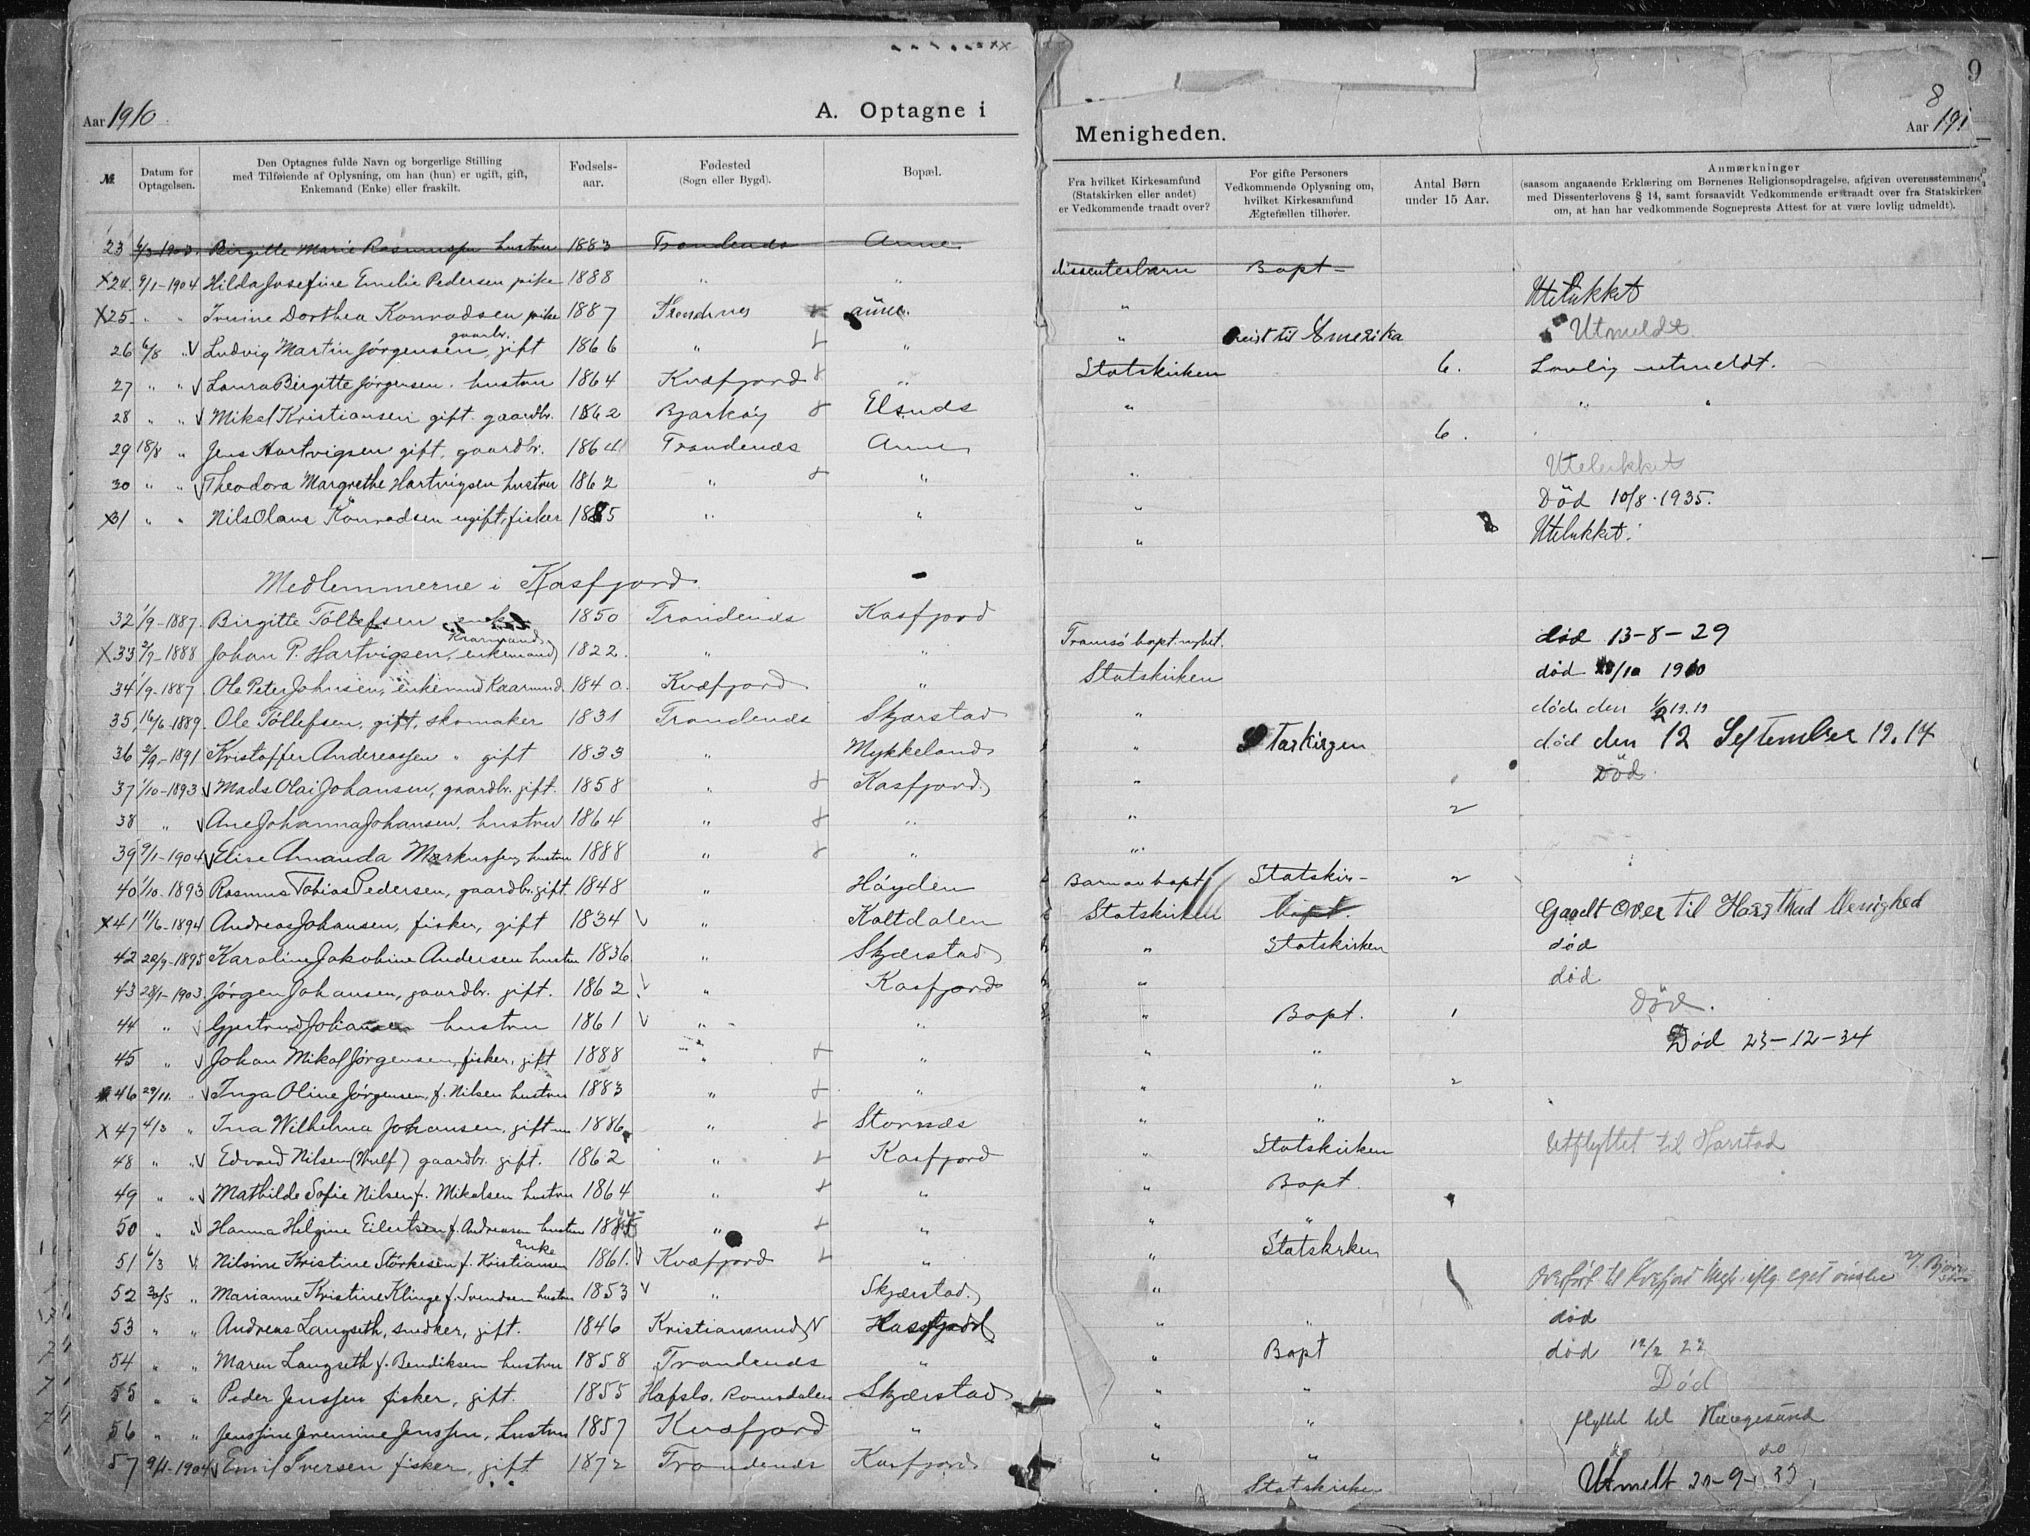 Aar 1910
A. Optagne i
№
Datum for Optagelsen.
Den Optagnes fulde Navn og borgerlige Stilling
med Tilføiende af Oplysning, om han (hun) er ugift, gift,
Enkemand (Enke) eller fraskilt.
Fødsels-
aar.
Fødested
(Sogn eller Bygd).
Bopæl.
23 6/3 1903. Birgitte Marie Rasmussen hustru 1883 Trondenæs Aune
x24. 9/1-1904 Hilda Josefine Emilie Pedersen pike 1888 " "
x25. " " Irene Dorthea Konradsen pike 1887 Trondnes aune.
gaardbr.
26 6/8 " Ludvig Martin Jørgensen, gift 1866 " "
27 " " Laura Birgitte Jørgensen. hustru 1864 Kvæfjord "
28 " " Mikal Kristiansen gift. gaardbr. 1862 Bjarköy Elsnæs
29 18/8 " Jens Hartvigsen gift, gaardbr. 1864 Trondenæs Aune
30 " " Theodora Margrethe Hartvigsen hustru 1862 " "
x31 " " Nils Olaus Konradsen ugift, fisker 1885 " "
Medlemmerne i Kasfjord.
32 1/9-1887. Birgitte Töllefsen enke 1850 Trondenæs Kasfjord
Kaarmand
x33 2/9-1888 Johan P. Hartvigsen, enkemand 1822. " "
34 1/9-1887. Ole Peter Johnsen, enkemand Kaarmand. 1840. Kvæfjord "
35 16/6-1889. Ole Töllefsen, gift, skomaker 1831 Trondenæs Skjærstad
36 2/9-1891 Kristoffer Andreassen " gift 1833 " Mykkeland
37 1/10-1893 Mads Olai Johansen, gaardbr. gift. 1858 " Kasfjord
38 " Ane Johanna Johansen, hustru 1864 " "
39 9/1-1904 Elise Amanda Markussen hustru 1888 " "
40 1/10.1893 Rasmus Tobias Pedersen, gaardbr. gift. 1848 " Höyden
x41 11/6-1894 Andreas Johansen, fisker, gift 1834 " Kaltdalen
42 22/9-1895 Karoline Jakobine Andersen hustru 1836 " Skjærstad
43 28/1-1903. Jørgen Johansen, gaardbr. gift. 1862 " Kasfjord
44 " Gjertrud Johansen hustru 1861 " "
45 " Johan Mikal Jørgensen, fisker, gift 1888 " "
46 29/11. " Inga Oline Jørgensen, f. Nilsen hustru 1883 " "
x47 4/3 " Ina Wilhelma Johansen, gift 1886 " Stornæs
48 " " Edvard Nilsen (Wulf) gaardbr. gift. 1862 " Kasfjord
49 " " Mathilde Sofie Nilsen f. Mikalsen hustru 1864 " "
50 " " Hanna Helgine Eilertsen f. Andreasen hustru 1885 " "
Enke
51 6/3 " Nilsine Kristine Störkesen f. Kristiansen 1861. Kvæfjord "
52 30/5 " Marianne Kristine Klinge f. Svendsen hustru 1853 " Skjærstad.
53 " " Andreas Langseth, snedker, gift. 1846 Kristiansund N Kasfjord
54 " " Maren Langseth f. Bendiksen hustru 1858 Trondenæs "
55 " " Peder Jenssen fisker, gift. 1855 Hafslo. Romsdalen Skjærstad
56 " " Jenssine Jeremine Jenssen, hustru 1857 Kvæfjord "
57 9/1-1904 Emil Iversen fisker, gift 1872 Trondenæs Kasfjord
9
8
Menigheden.
Aar 191
Fra hvilket Kirkesamfund
(Statskirken eller andet)
er Vedkommende traadt over?
For gifte Personers
Vedkommende Oplysning om,
hvilket Kirkesamfund
Ægtefællen tilhører.
Antal Børn
under 15 Aar.
Anmærkninger
(saasom angaaende Erklæring om Børnenes Religionsopdragelse, afgiven overensstemmend
med Dissenterlovens § 14, samt forsaavidt Vedkommende er traadt over fra Statskirken
om, at han har vedkommende Sogneprests Attest for at være lovlig udmeldt).
dissenterbarn Bapt-
" Utelukket
" reist til Amerika Utmeldt
Statskirken 6. Lovlig utmeldt.
" " "
6.
" Utelukket
" Död 10/8.1935.
" Utelukket.
Tromsö bapt. nyhet. død 13-8-29
Statskirken død /10 1910
" døde den 1/2 19.19
" Starkirgen død den 12 September 19.14
" Död.
" 2
"
Barn av bapt Statskir- 2
Statskirken bapt. Gaaelt over til Harsthad Menighed
" Statskirken død
" død
" Bapt. 1 Död.
" " Død 23-12-34
" " 2
" "
" Statskirken Utflyttet til Harstad
" Bapt.
" "
" Statskirken
" Overført til Kvæfjord Mgh. iflg. eget ønske
" " død
" Bapt død 12/2 22
" " Död
" " flyttet til Haugesund
" " do do
" Statskirken Utmelt 20-9-33